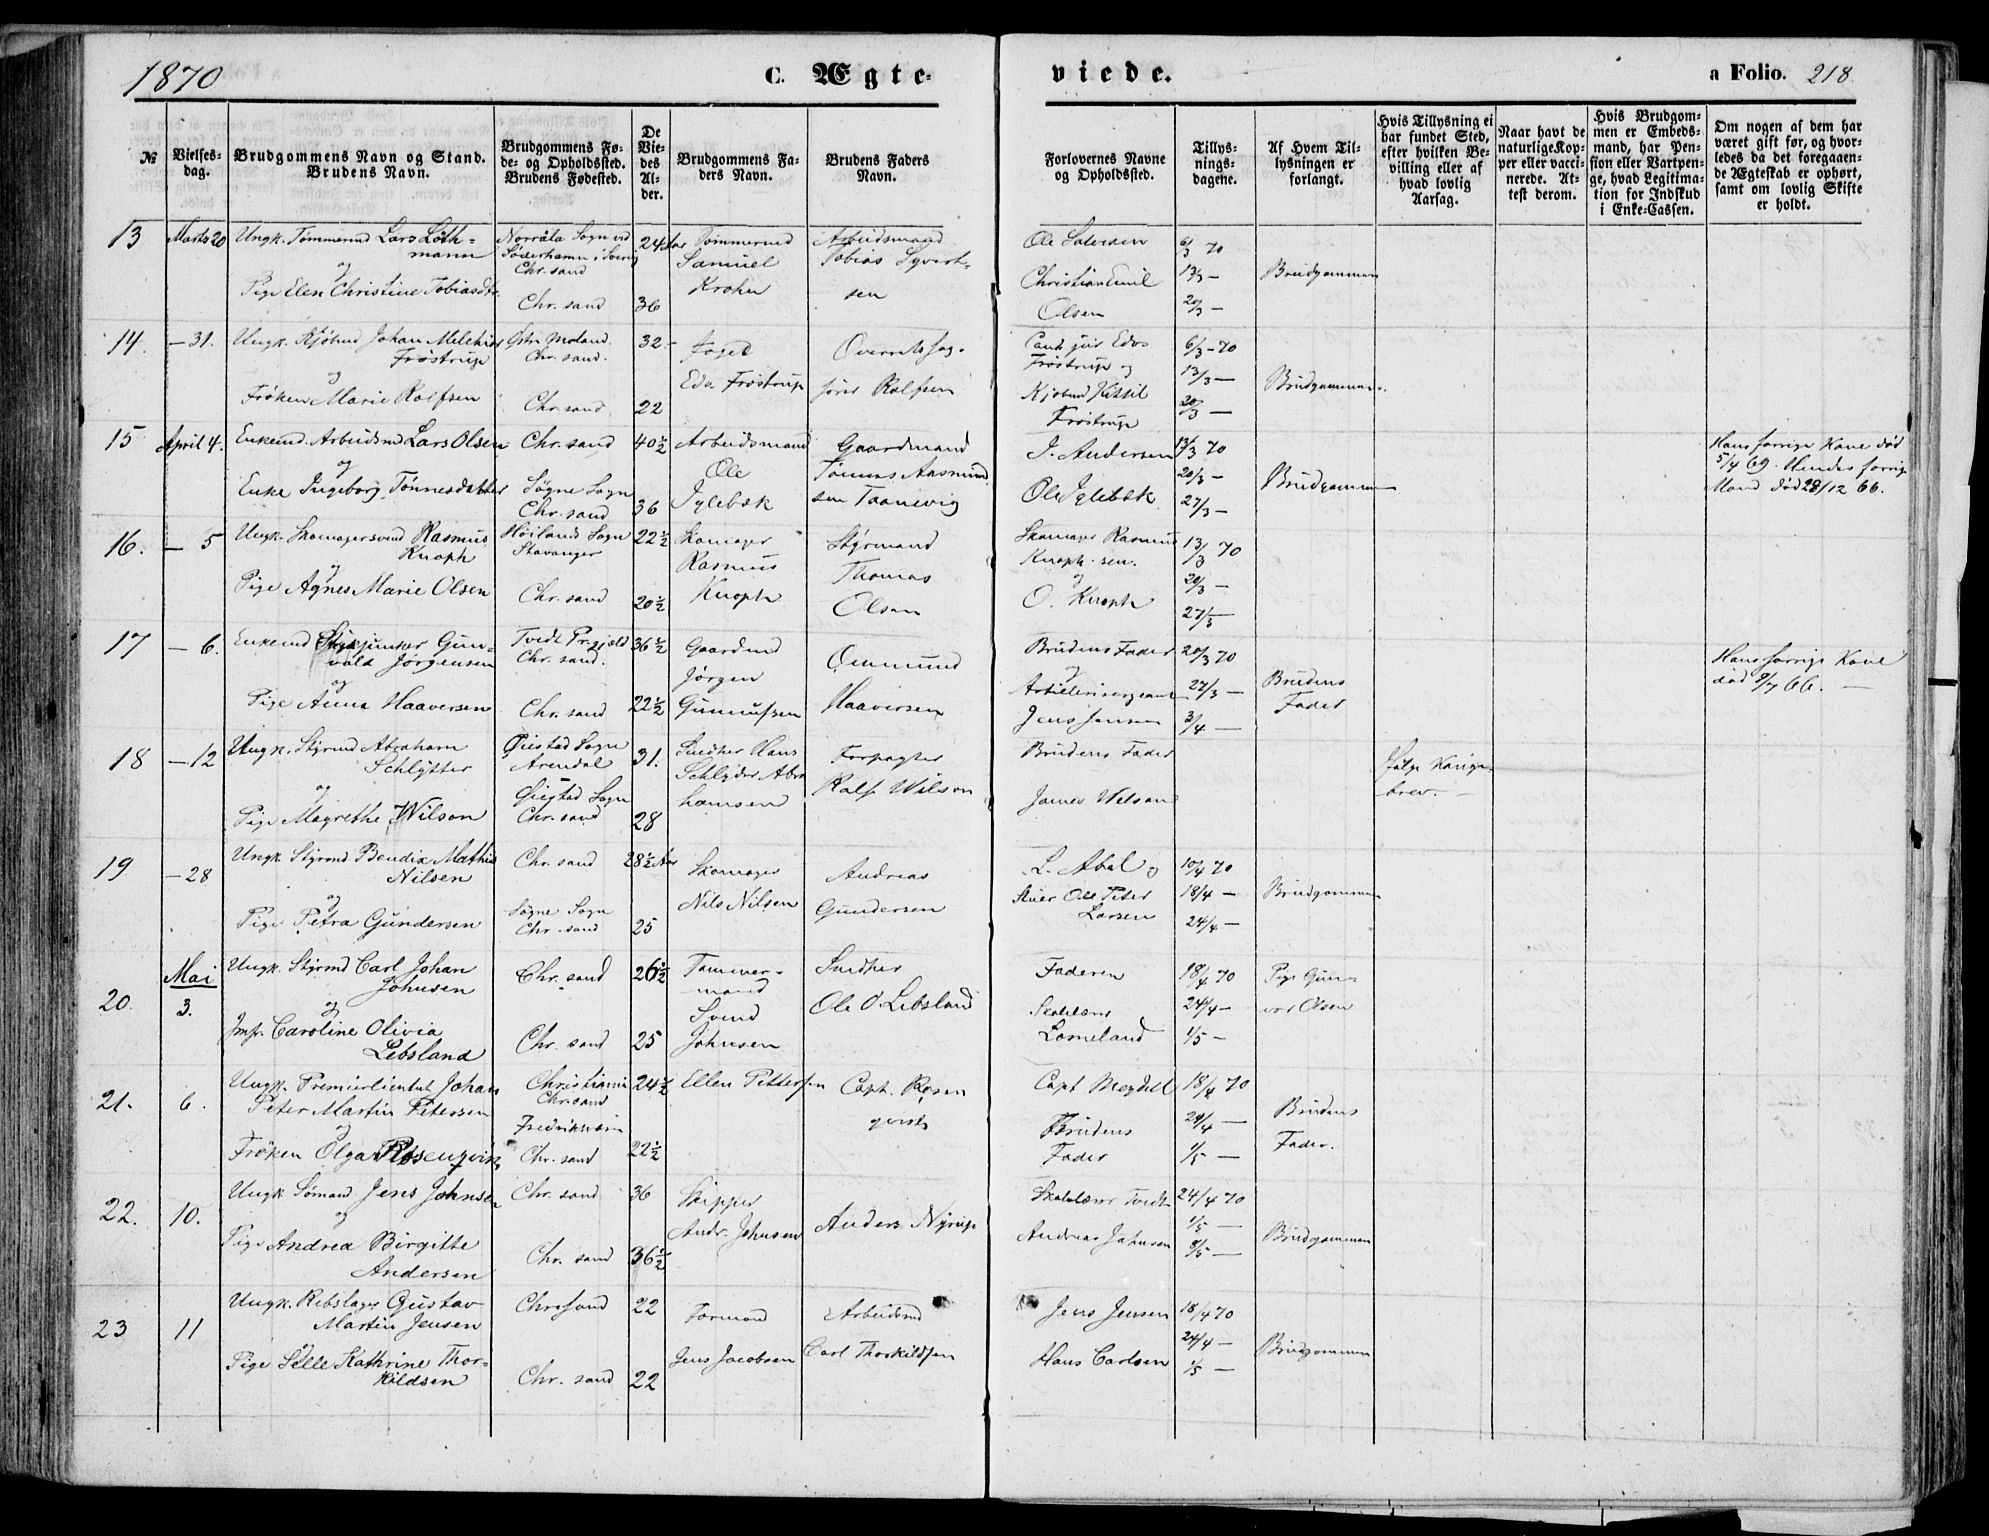 1870
C. Ægte-
viede.
a Folio. 218.
№
Vielses-
dag.
Brudgommens Navn og Stand.
Brudens Navn.
Brudgommens Fø-
de- og Opholdssted.
Brudens Fødested.
De
Vie-
des
Al-
der.
Brudgommens Fa-
ders Navn.
Brudens Faders
Navn.
Forlovernes Navne
og Opholdssted.
Tillys-
nings-
dagene.
Af Hvem Til-
lysningen er
forlangt.
Hvis Tillysning ei
har fundet Sted,
efter hvilken Be-
villing eller af
hvad lovlig
Aarsag.
Naar havt de
naturlige Kop-
per eller vacci-
nerede. At-
test derom.
Hvis Brudgom-
men er Embeds-
mand, har Pen-
sion eller Vartpen-
ge, hvad Legitima-
tion for Indskud
i Enke-Cassen.
Om nogen af dem har
været gift før, og hvor-
ledes da det foregaaen-
de Ægteskab er ophørt,
samt om lovlig Skifte
er holdt.
13 Marts 20
Ungk. Tømmermd Lars Løth-
mann
og
Pige Elen Christine Tobiasdtr.
Norrala Sogn ved
Søderhamn i Sverig
Chr. sand
Chr. sand
24
36
Tømmermd
Samuel
Krohn
Arbeidsmand
Tobias Syvert-
sen
Ole Salvesen
Christian Emil
Olsen
6/3 70
13/3 —
20/3 —
Brudgommen
14. — 31.
Ungk. Kjøbmd Johan Melchior
Frøstrup
og
Frøken Marie Rolfsen
Østr. Moland
Chr. sand.
Chr. sand
32
22
Foged
Edv. Frøstrup
Overretssag-
fører Rolfsen
Cand. jur Edv.
Frøstrup og
Kjøbmd Kittil
Frøstrup
6/3 - 70
13/3 —
20/3 —
Brudgommen
15 April 4.
Enkemd. Arbeidsmd Lars Olsen
og
Enke Ingeborg Tønnesdatter
Chr. sand
Søgne Sogn
Chr. sand
40 1/2
36
Arbeidsmand
Ole
Iglebæk
Gaardmand
Tønnes Aasmund
sen Taanevig
J. Andersen
Ole Iglebæk
13/3 70
20/3 —
27/3 —
Brudgommen
Hans forrige Kone død
5/4 69. Hendes forrige
Mand død 28/12 66.
16. — 5
Ungk. Skomagersvend Rasmus
Knoph
og
Pige Agnes Marie Olsen
Høilands Sogn
Stavanger
Chr. sand
22 1/2
20 1/2
Skomager
Rasmus
Knoph
Styrmand
Thomas
Olsen
Skomager Rasmus
Knoph sen.
og
O. Knoph
13/3 70
20/3 —
27/3 —
17 — 6.
Enkemd Stykjunker Gun-
vald Jørgensen
og
Pige Anna Haaversen
Tvedt Prgjæld
Chr. sand.
Chr. sand
36 1/2
22 1/2
Gaardmd
Jørgen
Gunnufsen
Omund
Haaversen
Brudens Fader
og
Artillerisergeant
Jens Jensen
20/3 70
27/3 —
3/4 —
Brudens
Fader
Hans forrige Kone
død 9/7 66. —
18 — 12
Ungk. Styrmd Abraham
Schlytter
og
Pige Magrethe Wilson
Øiestad Sogn
Arendal
Øiestad Sogn
Chr. sand
31.
28
Snedker Hans
Schlyder Abra
hamsen
Forpagter
Ralf Wilson
Brudens Fader
James Wilson
Ifølge Konge-
brev. —
19 — 28
Ungk. Styrmd Bendix Mathias
Nilsen
og
Pige Petra Gundersen
Chr. sand
Søgne Sogn
Chr. sand
28 1/2 Aar
25
Skomager
Nils Nilsen
Andreas
Gundersen
L. Abel og
Ole Peter
Larsen
10/4 70
18/4 —
24/4 —
Brudgommen
20. Mai
3.
Ungk. Styrmd Carl Johan
Johnsen
og
Jmf. Caroline Olivia
Lebsland
Chr. sand
Chr. sand
26 1/2
25
Tømmer-
mand
Svend
Johnsen
Snedker
Ole O. Lebsland
Faderen
Skolelærer
Lomeland
18/4 70
24/4 —
1/5 —
Pige Gun-
vor Olsen
21. 6.
Ungk. Premierlieutnt Johan
Peter Martin Petersen
og
Frøken Olga Rosenqvist
Christiania
Chr. sand
Fredriksværn
Chr. sand
24 1/2
22 1/2
Ellen Pettersen
Capt. Rosen
qvist
Capt Meydell
Brudens
Fader
18/4 70
24/4 —
1/5 —
Brudens
Fader.
22. 10.
Ungk. Sømand Jens Johnsen
og
Pige Andrea Birgitte
Andersen
Chr. sand
Chr. sand
36
36 1/2
Skipper
Andr. Johnsen
Anders Nyrup
Skolelærer Tvedt
Andreas Johnsen
24/4 70
1/5 —
8/5 —
Brudgommen
23 11
Ungk. Rebslager Gustav
Martin Jensen
og
Pige Selle Kathrine Thor-
kildsen
Chr. sand
Chr. sand
22
22
Formand
Jens Jacobsen
Arbeidsmd
Carl Thorkildsen
Jens Jensen
Hans Carlsen
18/4 70
24/4 —
1/5 —
Brudgommen